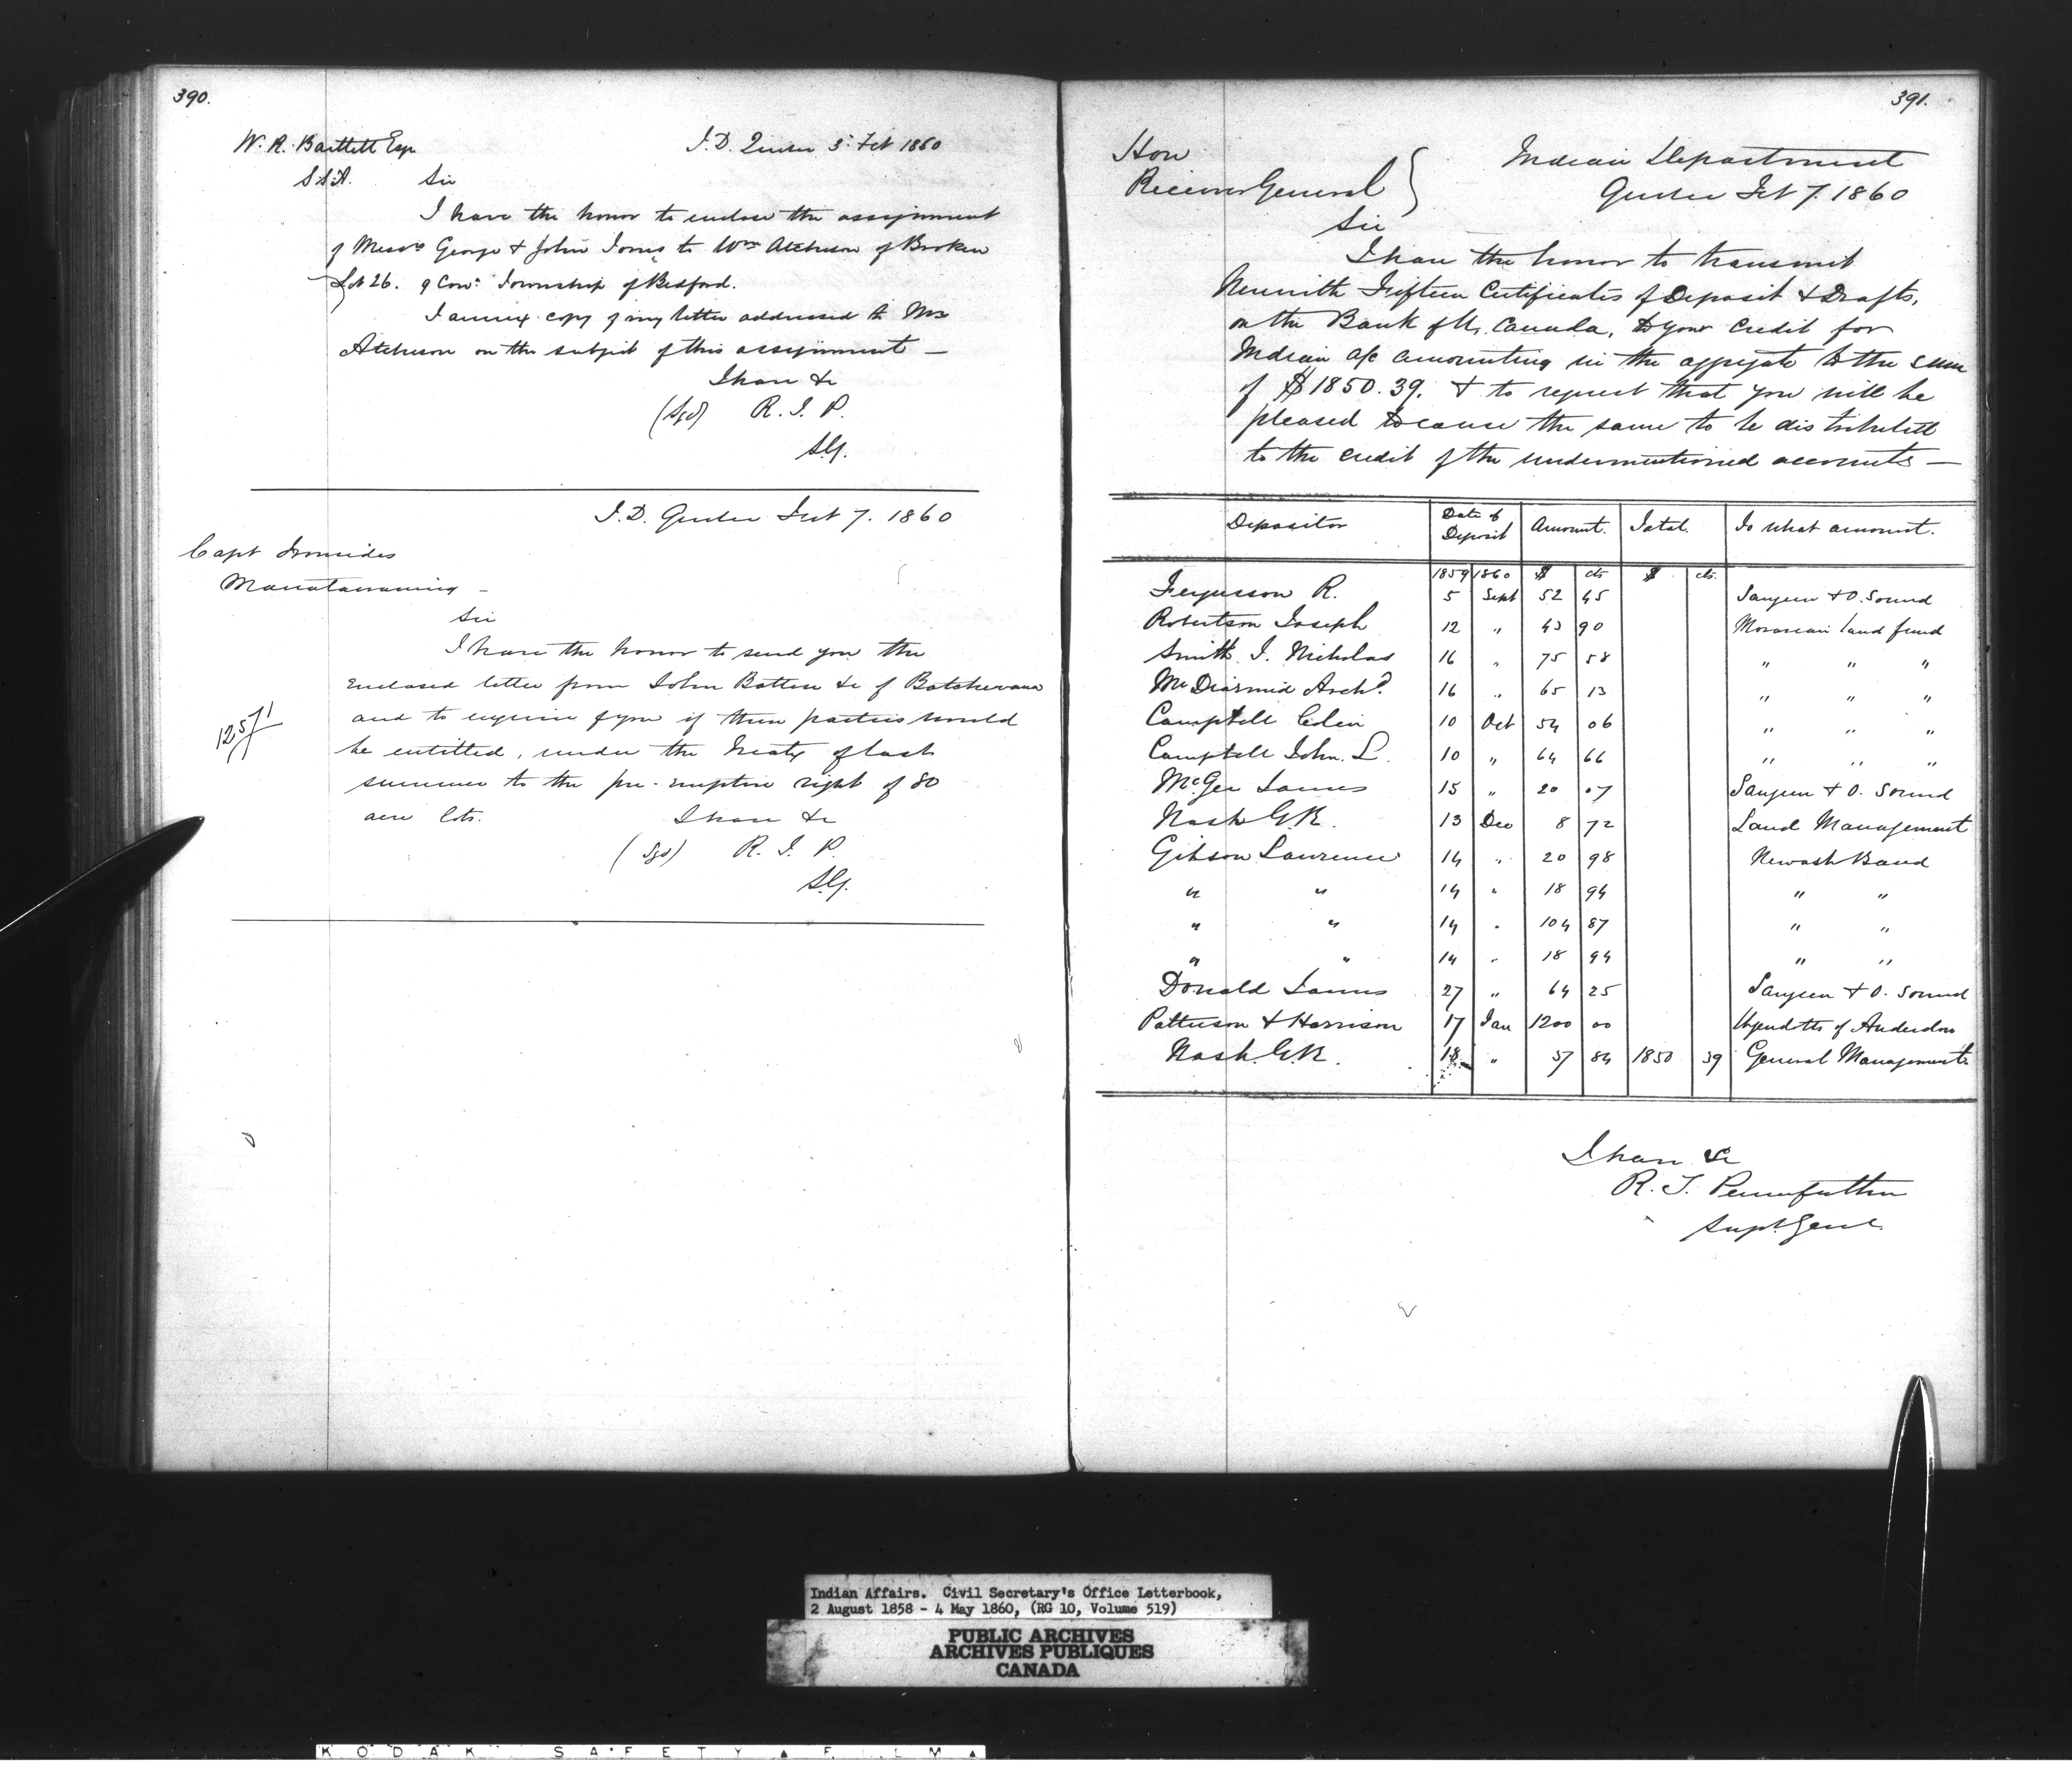 390.
W. R. Bartlett Esqr
I. D. Quebec 3: Feb 1860
S.S.I.A. Sir
I have the honor to enclose the assignment
of Messrs George & John Jones to Wm Atcheson of Broken
Lot 26. 9 Con: Township of Bedford.
I annex copy of my letter addressed to Mr
Atcheson on the subject of this assignment —
I have &c
(Sgd) R. T. P.
S.G.
I. D. Quebec Feb 7. 1860
Capt Ironsides
Manatawaning -
Sir
I have the honor to send you the
enclosed letter from John Batten &c of Batchewana
and to enquire of you if these parties would
be entitled, under the Treaty of last
summer to the pre-emptive right of 80
acre lots.
I have &c
(Sgd) R. T. P.
S.G.
391.
Hon
Receiver General
Indian Department
Quebec Feb 7. 1860
Sir
I have the honor to transmit
herewith Fifteen Certificates of Deposit & Drafts,
on the Bank of U. Canada, to your credit for
Indian a/c amounting in the aggregate to the sum
of $1850.39. & to request that you will be
pleased to cause the same to be distributed
to the credit of the undermentioned accounts —
Depositor Date of Deposit Amount. Total. To what amount.
1859 1860 $ cts $ cts.
Fergusson R. 5 Sept 52 45 Saugeen & O. Sound
Robertson Joseph 12 " 43 90 Moravian land fund
Smith J. Nicholas 16 " 75 58 " " "
McDiarmid Archd. 16 " 65 13 " " "
Campbell Colin 10 Oct 54 06 " " "
Campbell John. L. 10 " 64 66 " " "
McGee James 15 " 20 07 Saugeen & O. Sound
Nash G.R. 13 Dec 8 72 Land Management
Gibson Lawrence 14 " 20 98 Newash Band
" " 14 " 18 94 " "
" " 14 " 104 87 " "
" " 14 " 18 94 " "
Donald James 27 " 64 25 Saugeen & O. Sound
Patterson & Harrison 17 Jan 1200 00 Wyendotts of Anderdon
Nash G.R. 18 " 37 84 1850 39 General Management
I have &c
R. T. Pennefather
Supt. Genl.
Indian Affairs. Civil Secretary's Office Letterbook,
2 August 1858 - 4 May 1860, (RG 10, Volume 519)
PUBLIC ARCHIVES
ARCHIVES PUBLIQUES
CANADA
KODAK SAFETY FILM